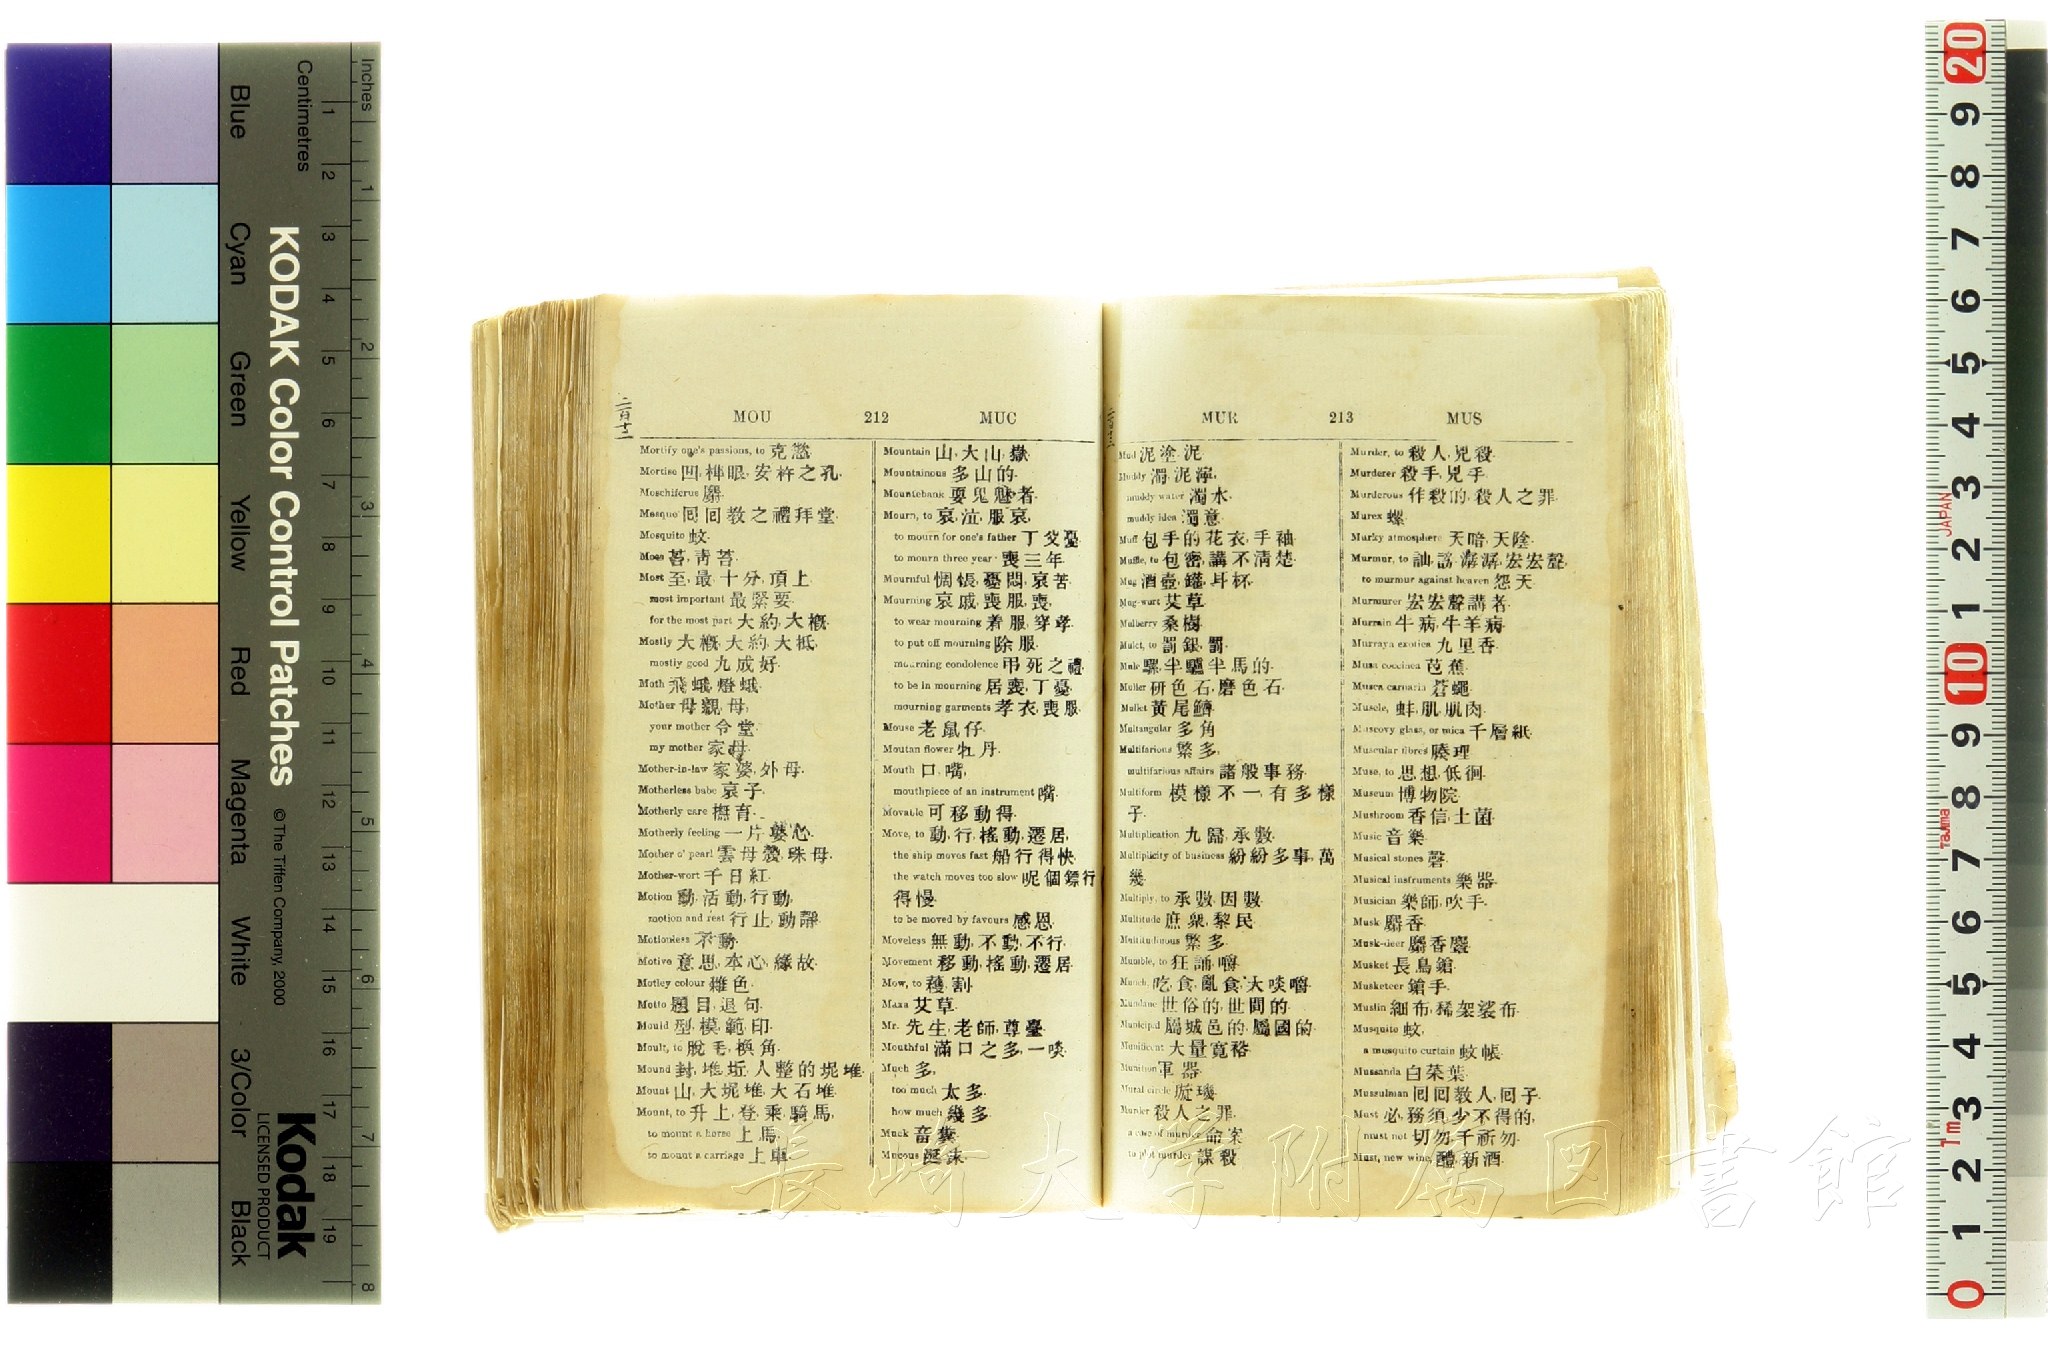 Inches
Centimetres
Blue
Cyan
Green
Yellow
Red
Magenta
White
3/Color
Black
KODAK Color Control Patches
© The Tiffen Company, 2000
Kodak
LICENSED PRODUCT
二百十二
MOU 212 MUC
Mortify one's passions, to 克慾.
Mortise 凹, 榫眼, 安杵之孔.
Moschiferus 麝.
Mosque 回回教之禮拜堂.
Mosquito 蚊.
Moss 苔, 靑苔.
Most 至, 最, 十分, 頂上.
most important 最緊要.
for the most part 大約, 大槪.
Mostly 大槪, 大約, 大抵.
mostly good 九成好.
Moth 飛蛾, 燈蛾.
Mother 母親, 母,
your mother 令堂.
my mother 家母.
Mother-in-law 家婆, 外母.
Motherless babe 哀子.
Motherly care 撫育.
Motherly feeling 一片婆心.
Mother o' pearl 雲母殼, 珠母.
Mother-wort 千日紅.
Motion 動, 活動, 行動,
motion and rest 行止, 動靜.
Motionless 不動.
Motive 意思, 本心, 緣故.
Motley colour 雜色.
Motto 題目, 退句.
Mould 型, 模, 範, 印.
Moult, to 脫毛, 換角.
Mound 封, 堆, 坵, 人整的坭堆.
Mount 山, 大坭堆, 大石堆.
Mount, to 升上, 登, 乘, 騎馬,
to mount a horse 上馬.
to mount a carriage 上車.
Mountain 山, 大山, 嶽.
Mountainous 多山的.
Mountebank 耍鬼魅者.
Mourn, to 哀, 泣, 服哀,
to mourn for one's father 丁父憂.
to mourn three year 喪三年.
Mournful 惆悵, 憂悶, 哀苦.
Mourning 哀戚, 喪服, 喪,
to wear mourning 着服, 穿孝.
to put off mourning 除服.
mourning condolence 弔死之禮.
to be in mourning 居喪, 丁憂.
mourning garments 孝衣, 喪服.
Mouse 老鼠仔.
Moutan flower 牡丹.
Mouth 口, 嘴,
mouthpiece of an instrument 嘴.
Movable 可移動得.
Move, to 動, 行, 搖動, 遷居,
the ship moves fast 船行得快.
the watch moves too slow 呢個鏢行
得慢.
to be moved by favours 感恩.
Moveless 無動, 不動, 不行.
Movement 移動, 搖動, 遷居.
Mow, to 穫, 割.
Maxa 艾草.
Mr. 先生, 老師, 尊臺.
Mouthful 滿口之多, 一啖.
Much 多,
too much 太多.
how much 幾多.
Muck 音糞.
Mucous 涎沫.
MUR 213 MUS
Mud 泥, 塗, 泥
Muddy 濁, 泥濘,
muddy water 濁水.
muddy idea 濁意.
Muff 包手的花衣, 手袖.
Muffle, to 包密, 講不清楚.
Mug 酒壺, 鐺, 斗杯.
Mug-wurt 艾草.
Mulberry 桑樹.
Mulct, to 罰銀, 罰.
Mule 騾, 半驢半馬的.
Muller 研色石, 磨色石.
Mullet 黃尾鱭.
Multangular 多角
Multifarious 繁多,
multifarious affairs 諸般事務.
Multiform 模樣不一, 有多樣
子.
Multiplication 九歸, 承數.
Multiplicity of business 紛紛多事, 萬
幾.
Multiply, to 承數, 因數.
Multitude 庶衆, 黎民.
Multitudinous 繁多.
Mumble, to 狂誦, 嚼.
Munch, 吃食, 亂食, 大啖嚼.
Mundane 世俗的, 世間的.
Municipal 屬城邑的, 屬國的.
Munificent 大量寬裕.
Munition 軍器.
Mural circle 璇璣.
Murder 殺人之罪.
a case of murder 命案.
to plot murder 謀殺.
Murder, to 殺人, 兇殺.
Murderer 殺手, 兇手.
Murderous 作殺的, 殺人之罪.
Murex 螺.
Murky atmosphere 天暗, 天陰.
Murmur, to 訕, 謗, 潺潺, 宏宏聲,
to murmur against heaven 怨天.
Murmurer 宏宏聲講者.
Murrain 牛病, 牛羊病.
Murraya exotica 九里香.
Musa coccinea 芭蕉.
Musca carnaria 蒼蠅.
Muscle, 蚌, 肌, 肌肉.
Muscovy glass, or mica 千層紙.
Muscular fibres 腠理.
Muse, to 思想, 低徊.
Museum 博物院.
Mushroom 香信, 土菌.
Music 音樂.
Musical stones 磬.
Musical instruments 樂器.
Musician 樂師, 吹手.
Musk 麝香.
Musk-deer 麝香麞.
Musket 長鳥鎗.
Musketeer 鎗手.
Muslin 細布, 稀袈裟布.
Musquito 蚊,
a musquito curtain 蚊帳.
Mussanda 白茶葉.
Mussulman 回回敎人, 回子.
Must 必, 務須, 少不得的,
must not 切勿, 千祈勿.
Must, new wine, 醴, 新酒.
長崎大学附属図書館
JAPAN
Tajima
1m